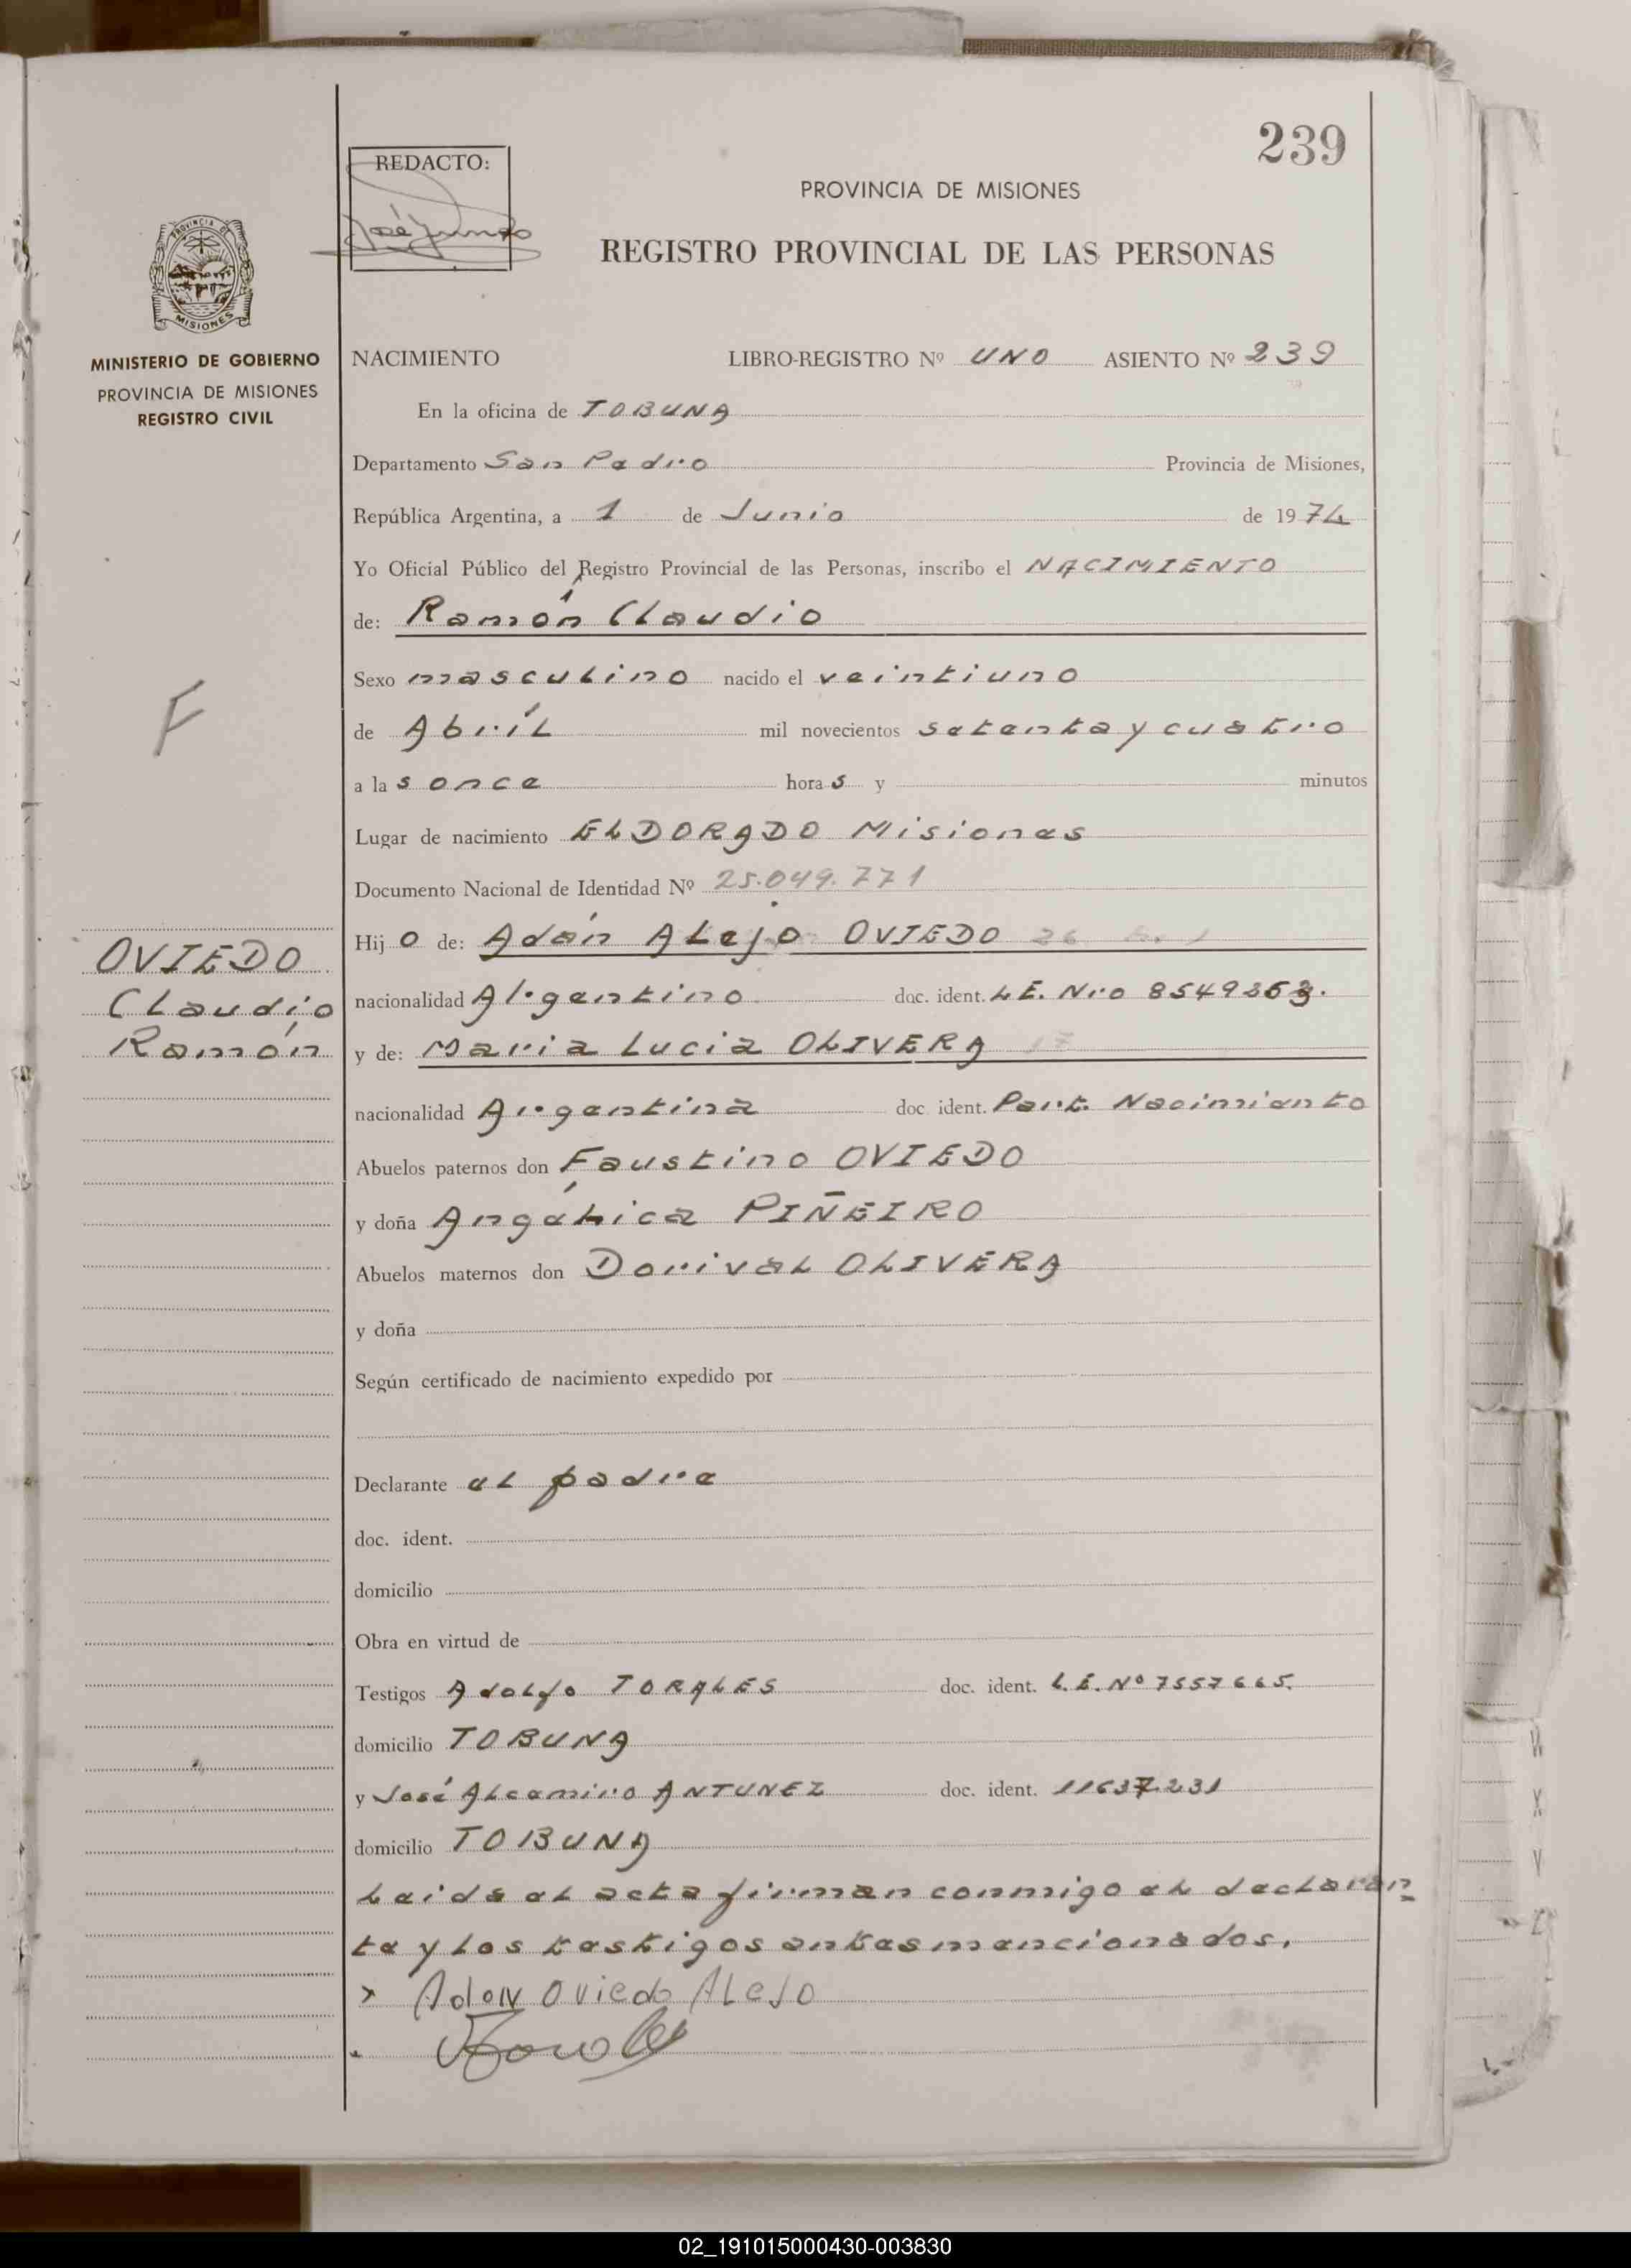 239
REDACTO:
PROVINCIA DE MISIONES
REGISTRO PROVINCIAL DE LAS PERSONAS
PROVINCIA DE
MISIONES
MINISTERIO DE GOBIERNO
PROVINCIA DE MISIONES
REGISTRO CIVIL
NACIMIENTO LIBRO-REGISTRO Nº UNO ASIENTO Nº 239
En la oficina de TOBUNA
Departamento San Pedro Provincia de Misiones,
República Argentina, a 1 de Junio de 1974
Yo Oficial Público del Registro Provincial de las Personas, inscribo el NACIMIENTO
de: Ramón Claudio
Sexo masculino nacido el veintiuno
F
de Abríl mil novecientos setenta y cuatro
a las once horas y minutos
Lugar de nacimiento ELDORADO Misiones
Documento Nacional de Identidad Nº 25.049.771
Hijo de: Adán Alejo OVIEDO 26
OVIEDO
Claudio
Ramón
nacionalidad Argentino doc. ident. L.E. Nro 8549363.
y de: Maria Lucia OLIVERA 17
nacionalidad Argentina doc. ident. Part. Nacimiento
Abuelos paternos don Faustino OVIEDO
y doña Angélica PIÑEIRO
Abuelos maternos don Dorival OLIVERA
y doña
Según certificado de nacimiento expedido por
Declarante el padre
doc. ident.
domicilio
Obra en virtud de
Testigos Adolfo TORALES doc. ident. L.E. Nº 7557665.
domicilio TOBUNA
y José Alcamiro ANTUNEZ doc. ident. 11637231
domicilio TOBUNA
Leida el acta firman conmigo el declaran
te y los testigos antes mencionados.
x Adan Oviedo Alejo
02_191015000430-003830